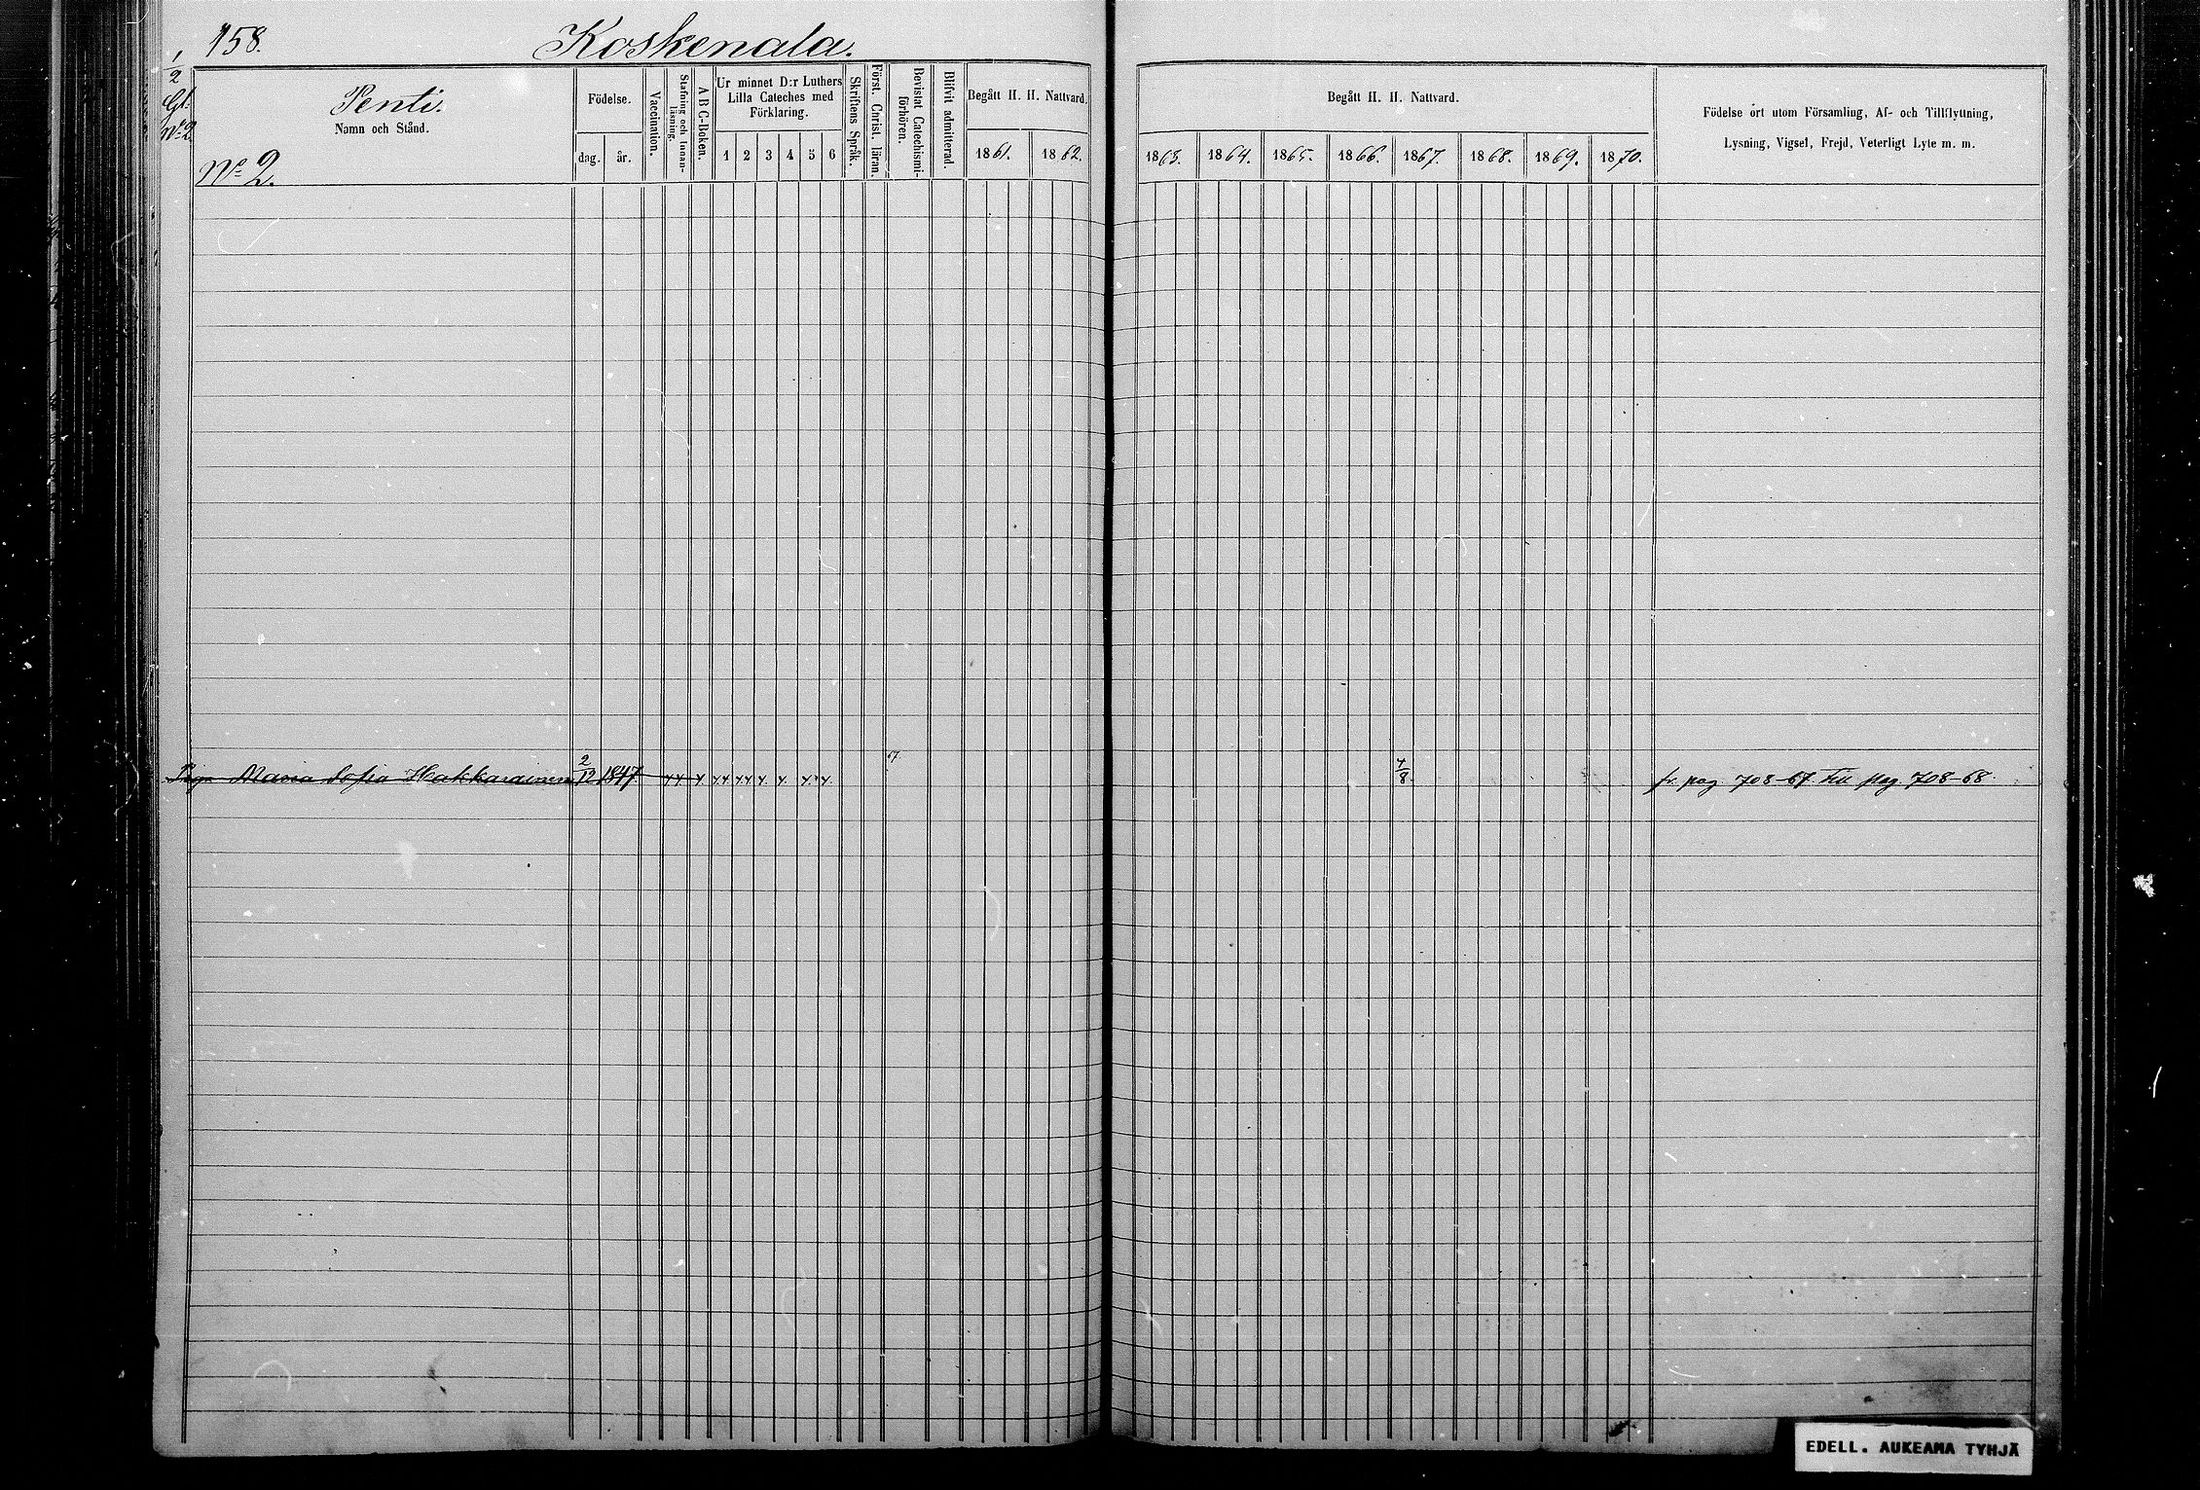 158.
Koskenala.
1/2
Gl.
No 2.
Penti.
Namn och Stånd.
No 2.
Födelse.
dag.
år.
Vaccination.
Stafning och Innan-
läsning.
A B C-Boken.
Ur minnet D:r Luthers
Lilla Cateches med
Förklaring.
1 2 3 4 5 6
Skriftens Språk.
Först. Christ. läran.
Bevistat Catechismi-
förhören.
Blifvit admitterad.
Begått H. H. Nattvard.
1861. 1862.
Begått H. H. Nattvard.
1863. 1864. 1865. 1866. 1867. 1868. 1869. 1870.
Födelse ort utom Församling, Af- och Tillflyttning,
Lysning, Vigsel, Frejd, Veterligt Lyte m. m.
Pig. Maria Sofia Hakkarainen 2/12 1847 67 7/8 fr. pag. 708-67. till pag. 708-68.
EDELL. AUKEAMA TYHJÄ